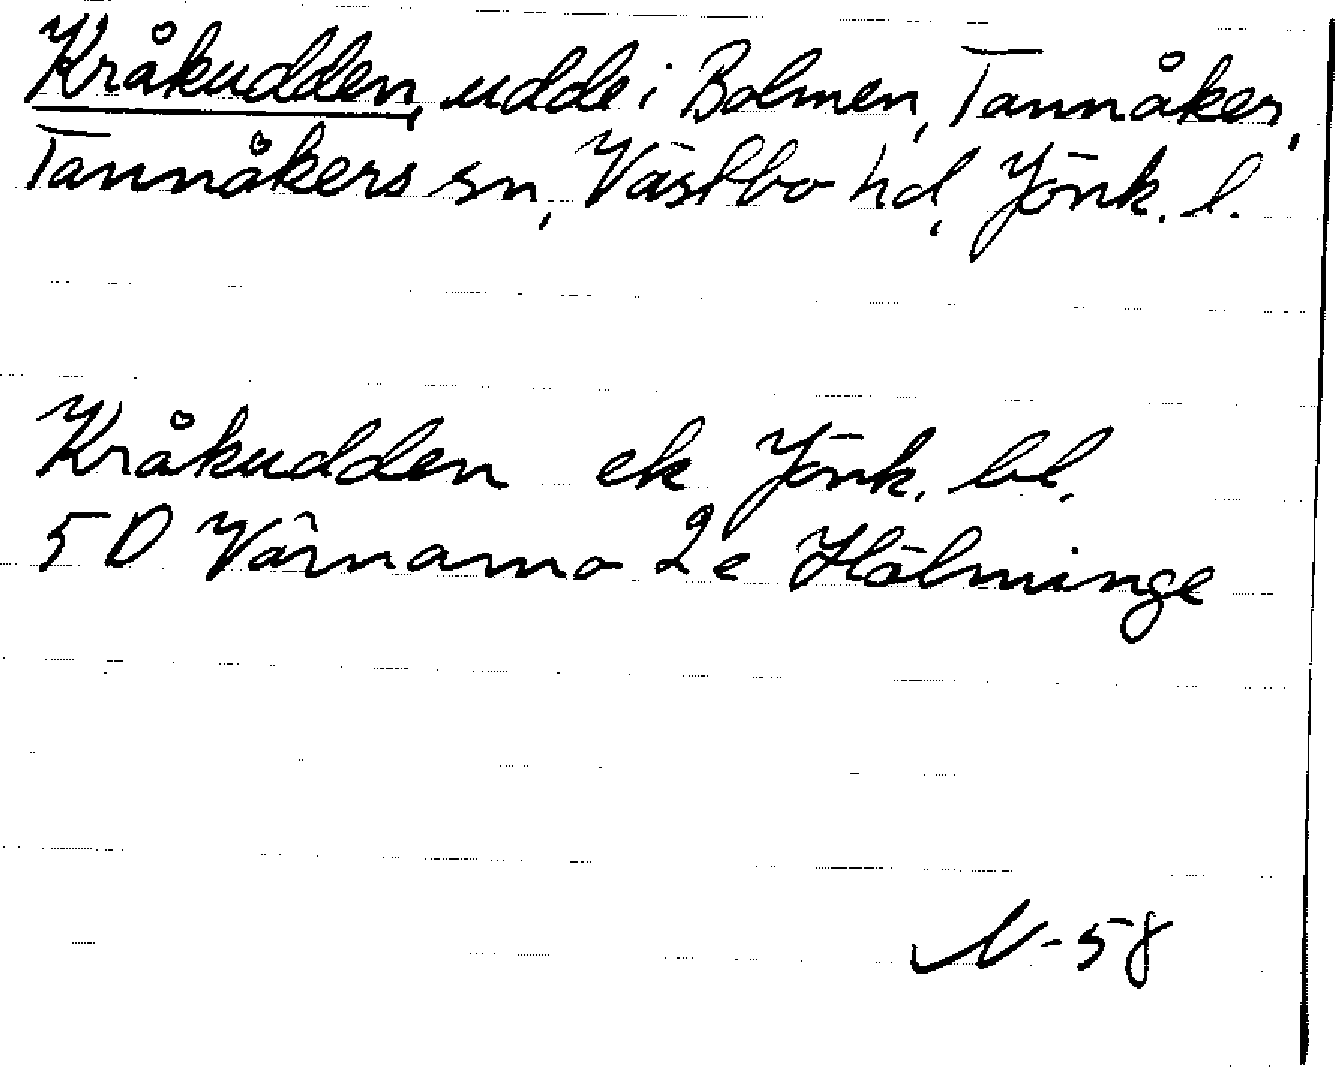 Kråkudden, udde i Bolmen, Tannåker,
Tannåkers sn, Västbo hd, Jönk. l.
Kråkudden ek Jönk. bl.
5 D Värnamo 2e Hölminge
N-58